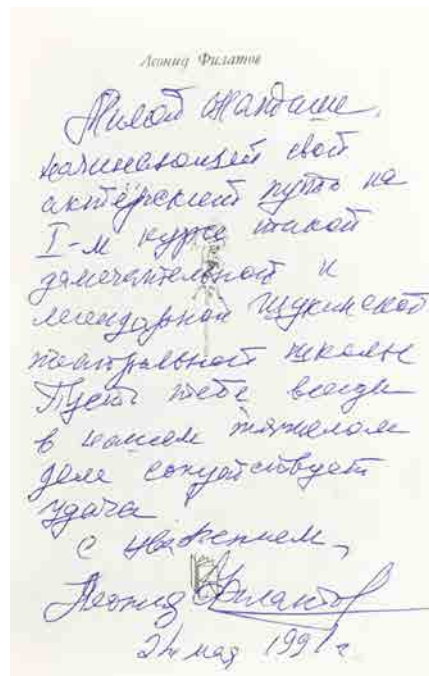 Леонид Филатов
Милой Наташе,
начинающей свой
актёрский путь на
I-м курсе такой
замечательной и
легендарной Щукинской
театральной школы
Пусть тебе всегда
в нашем тяжелом
деле сопутствует
удача
С уважением,
Леонид Филатов
24 мая 1991 г